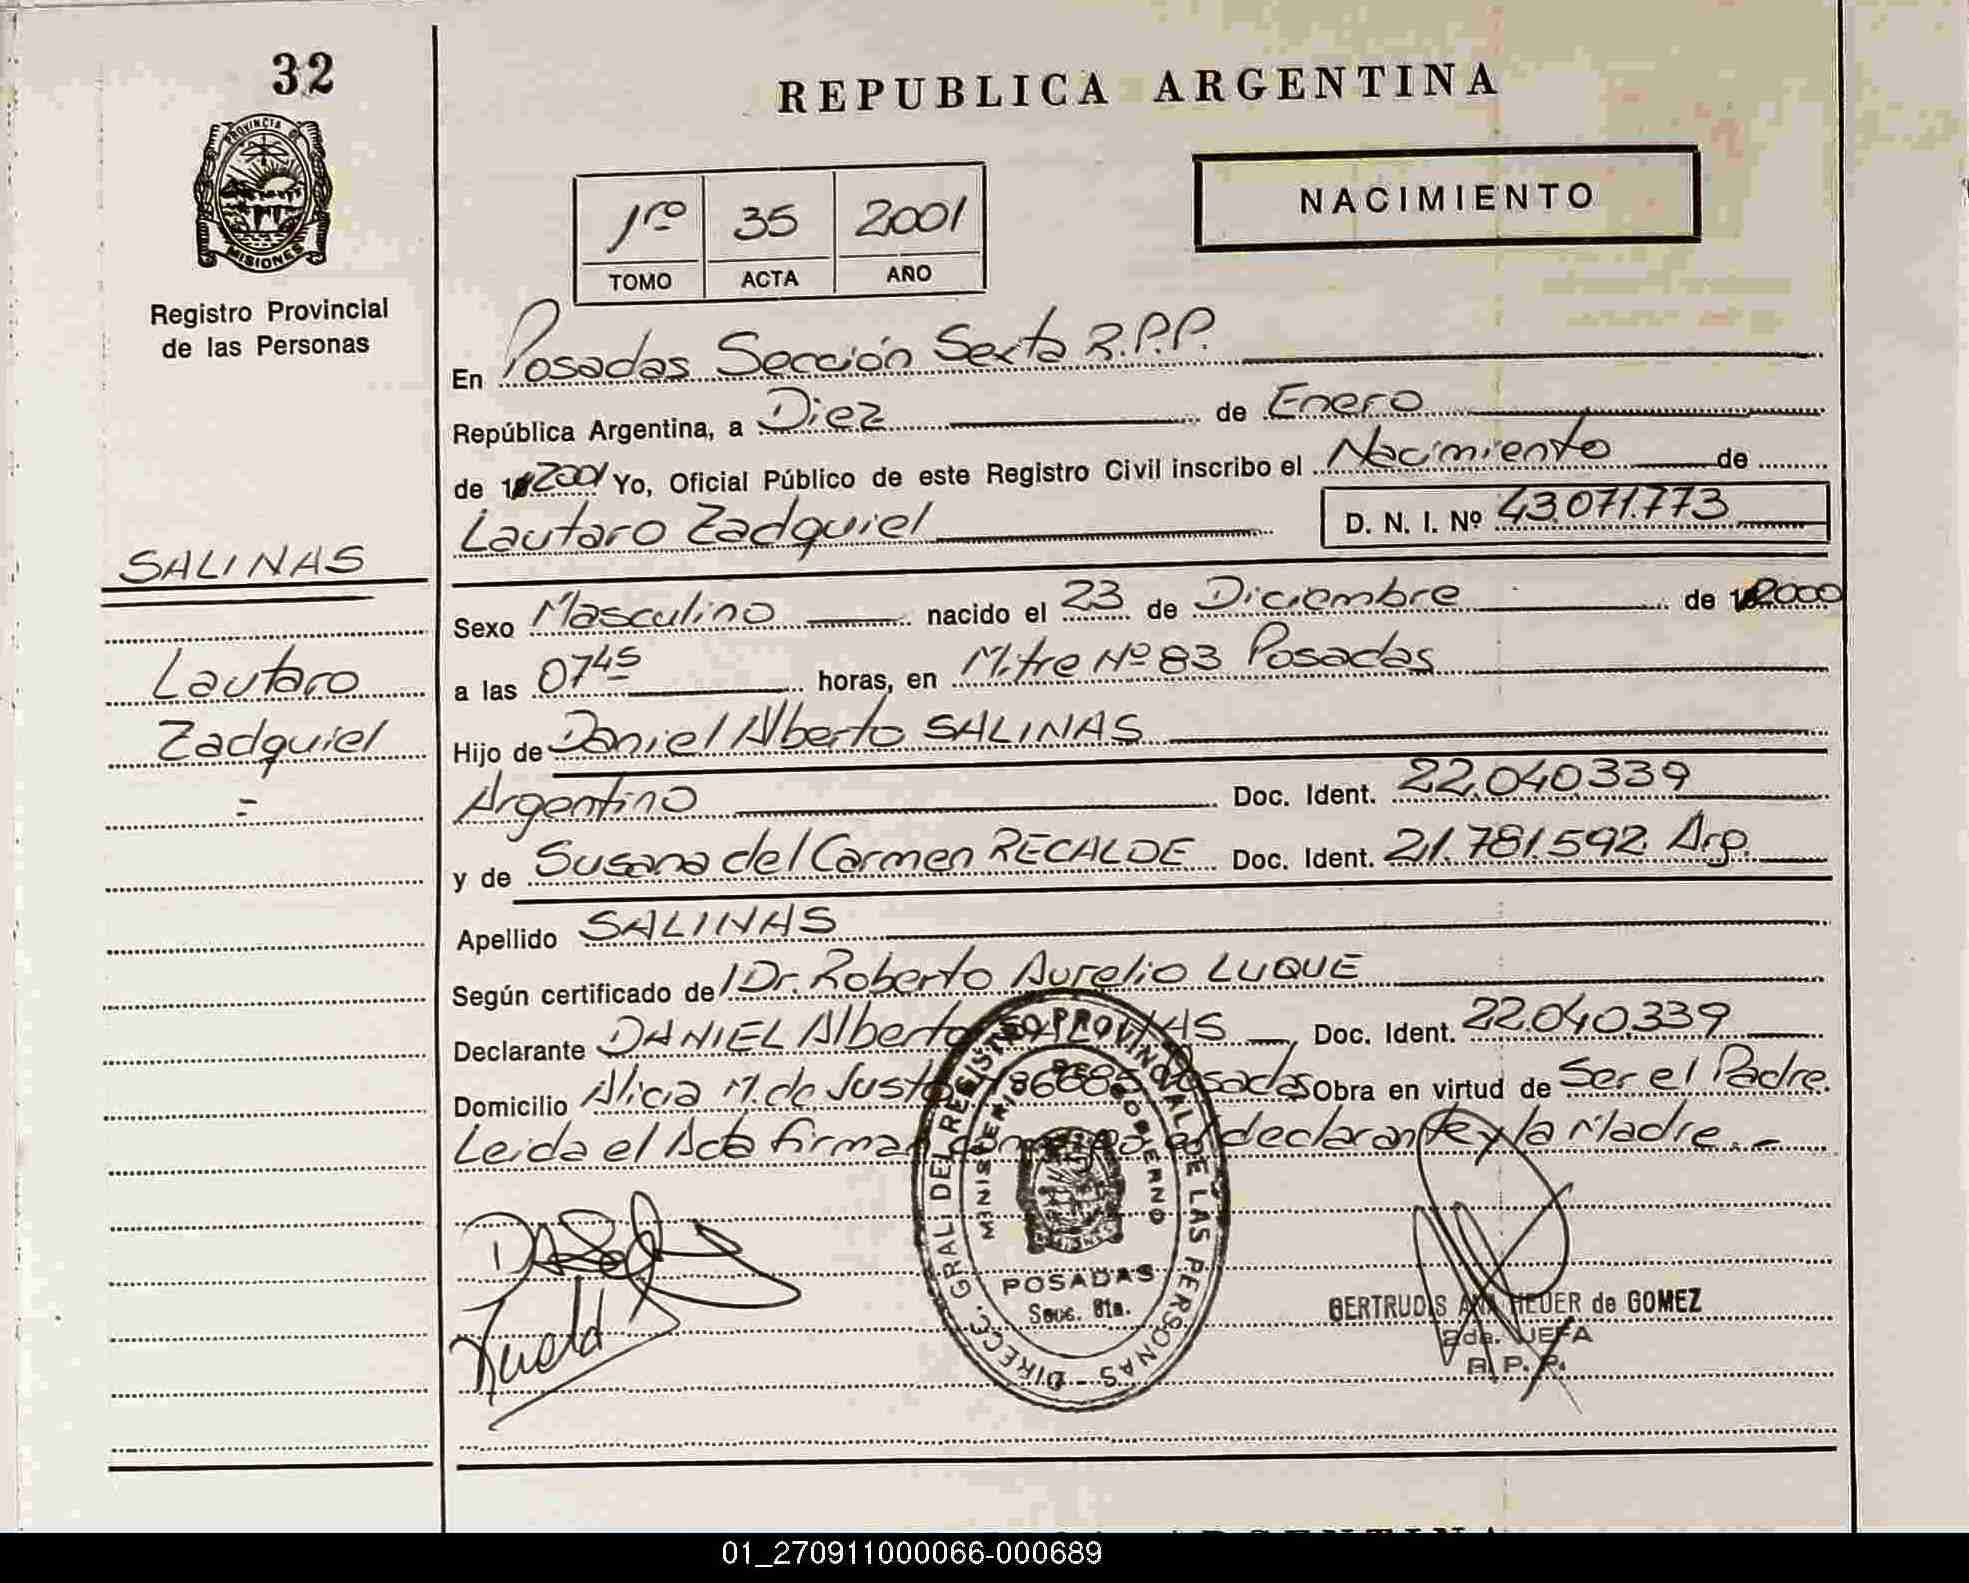 32
PROVINCIA DE
MISIONES
Registro Provincial
de las Personas
SALINAS
Lautaro
Zadquiel
=
REPUBLICA ARGENTINA
1ro 35 2001
TOMO ACTA AÑO
NACIMIENTO
En Posadas Sección Sexta R.P.P.
República Argentina, a Diez de Enero
de 2001 Yo, Oficial Público de este Registro Civil inscribo el Nacimiento de
Lautaro Zadquiel D. N. I. Nº 43.071.773
Sexo Masculino nacido el 23 de Diciembre de 2000
a las 07 45 horas, en Mitre Nº 83 Posadas
Hijo de Daniel Alberto SALINAS
Argentino Doc. Ident. 22.040.339
y de Susana del Carmen RECALDE Doc. Ident. 21.781.592 Arg.
Apellido SALINAS
Según certificado del Dr. Roberto Aurelio LUQUE
Declarante DANIEL Alberto SALINAS Doc. Ident. 22.040.339
Domicilio Alicia M. de Justo Posadas Obra en virtud de Ser el Padre.
Leida el Acta firman declarante y la Madre.-
DIRECC. GRAL DEL REGISTRO PROVINCIAL DE LAS PERSONAS
MINISTERIO DE GOBIERNO
POSADAS
Secc. 6ta.
GERTRUDIS ANA HEUER de GOMEZ
2da. JEFA
R. P. P.
REPUBLICA ARGENTINA
01_270911000066-000689